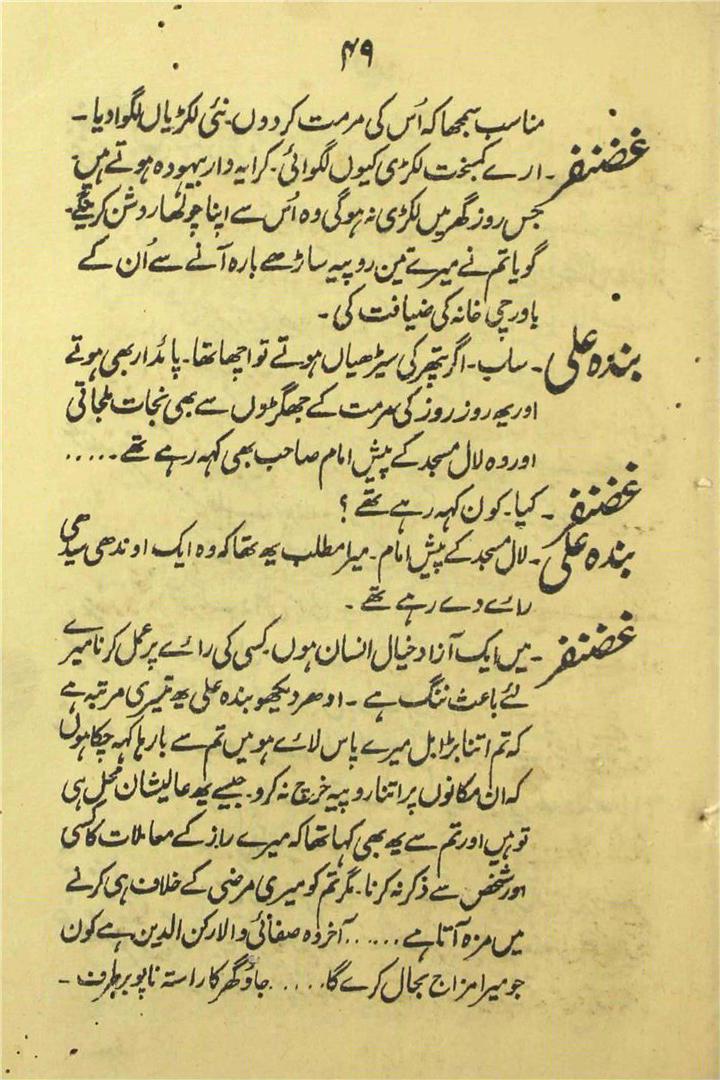 ۴۹
مناسب سمجھا کہ اُس کی مرمت کردوں۔ نئی لکڑیاں لگوادیا ۔
غضنفر ۔ ارے کمبخت لکڑی کیوں لگوائی۔ کرایہ دار بیہودہ ہوتے ہیں
جس روز گھر میں لکڑی نہ ہوگی وہ اُس سے اپنا چولھا روشن کرینگے۔
گویا تم نے میرے تین روپیہ ساڑھے بارہ آنے سے اُن کے
باورچی خانہ کی ضیافت کی ۔
بندہ علی ۔ ساب ۔ اگر پتھر کی سیڑھیاں ہوتے تو اچھا تھا۔ پائدار بھی ہوتے
اور یہ روز روز کی مرمت کے جھگڑوں سے بھی نجات ملجاتی
اور وہ لال مسجد کے پیش امام صاحب بھی کہہ رہے تھے ۔ ....
غضنفر ۔ کیا ۔ کون کہہ رہے تھے ؟
بندہ علی ۔ لال مسجد کے پیش امام ۔ میرا مطلب یہ تھا کہ وہ ایک اوندھی سیدھی
رائے دے رہے تھے ۔
غضنفر ۔ میں ایک آزاد خیال انسان ہوں۔ کسی کی رائے پر عمل کرنا میرے
لئے باعث ننگ ہے ۔ ادھر دیکھو بندہ علی یہ تیسری مرتبہ ہے
کہ تم اتنا بڑا بل میرے پاس لائے ہو میں تم سے بارہا کہہ چکا ہوں
کہ ان مکانوں پر اتنا روپیہ خرچ نہ کرو۔ جیسے یہ عالیشان محل ہی
تو ہیں اور تم سے یہ بھی کہا تھا کہ میرے راز کے معاملات کا کسی
اور شخص سے ذکر نہ کرنا۔ مگر تم کو میری مرضی کے خلاف ہی کرنے
میں مزہ آتا ہے ...... آخر وہ صفائی والا رکن الدین ہے کون
جو میرا مزاج بحال کرے گا ..... جاؤ گھر کا راستہ ناپو برطرف ۔